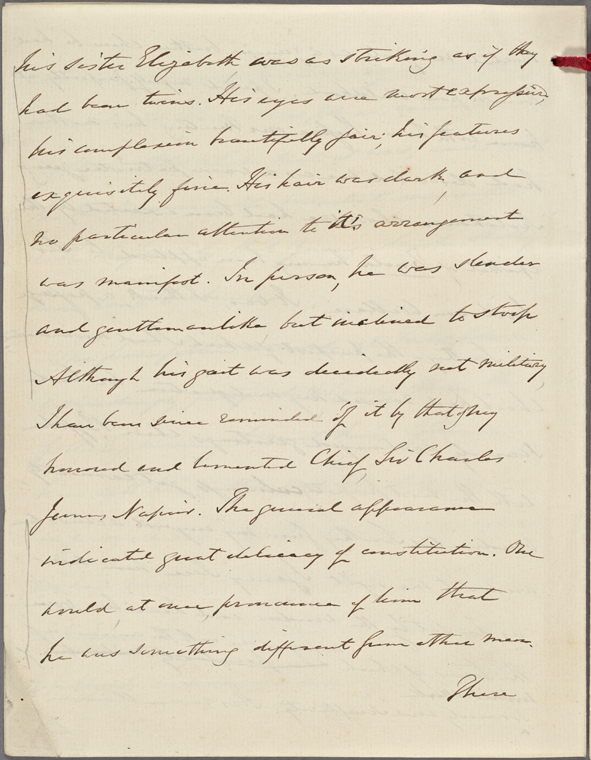 his sister Elizabeth was as striking as if they
had been twins. His eyes were most expressive,
his complexion beautifully fair, his features
exquisitely fine. His hair was dark, and
no particular attention to it's arrangement
was manifest. In person, he was slender
and gentlemanlike but inclined to stoop
Although his gait was decidedly not military,
I have been since reminded of it by that of my
honored and lamented Chief, Sir Charles
James Napier. The general appearance
indicated great delicacy of constitution. One
would at once pronounce of him that
he was something different from other men.
There